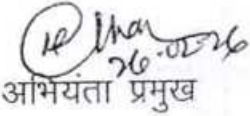 26.02.26
अभियंता प्रमुख